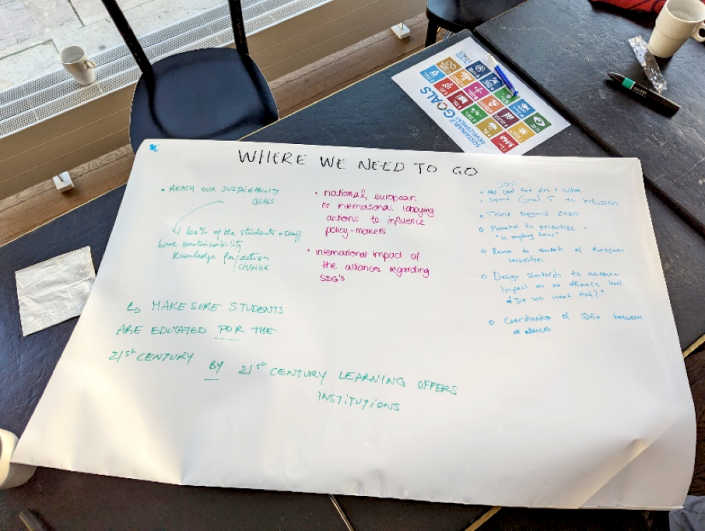 WHERE WE NEED TO GO
• REACH OUR SUSTAINABILITY
GOALS
100% of the students + staff
have sustainability
Knowledge for action
/ CHANGE
↳ MAKE SURE STUDENTS
ARE EDUCATED FOR THE
21st CENTURY BY 21st CENTURY LEARNING OFFERS
INSTITUTIONS
• national, european
& international lobbying
actions to influence
policy-makers
• international impact of
the alliances regarding
SDG's
Goal 5 to inclusion
Think beyond 2030
Potential to prioritise -
of European
universities
Design standards to measure
impact on an alliance level
Do we want that?"
Coordination of SDGs between
alliances
SUSTAINABLE
DEVELOPMENT
GOALS